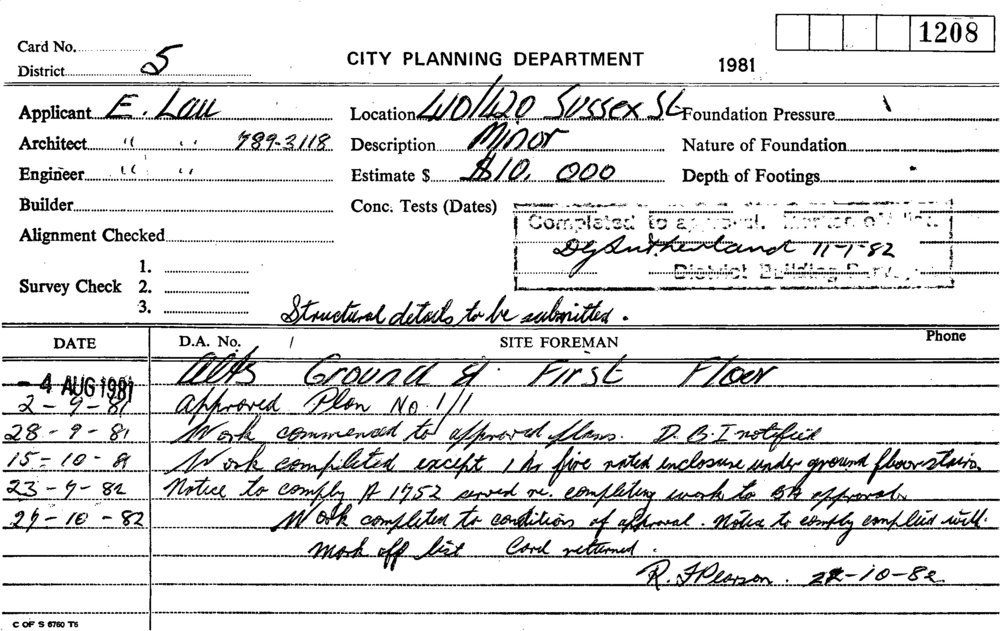 1208
Card No.
District 5
CITY PLANNING DEPARTMENT
1981
Applicant E. Lau
Location 410/420 Sussex St
Foundation Pressure
Architect " " 789-3118
Description Minor
Nature of Foundation
Engineer " "
Estimate $ $10,000
Depth of Footings
Builder
Conc. Tests (Dates)
Completed to approval.
Alignment Checked
DG Sutherland 11-1-82
District Building
Survey Check
1.
2.
3.
Structural details to be submitted.
DATE
D.A. No.
SITE FOREMAN
Phone
- 4 AUG 1981
Alts Ground & First Floor
2-9-81 Approved Plan No. 1/1
28-9-81 Work commenced to approved plans. D.B.I notified
15-10-81 Work completed except 1 hr fire rated enclosure under ground floor stairs.
23-9-82 Notice to comply A 1752 served re. completing work to BA approval.
27-10-82 Work completed to conditions of approval. Notice to comply complied with.
Mark off list Card returned.
R. J Pearson. 10-82
C OF S 6760 T6